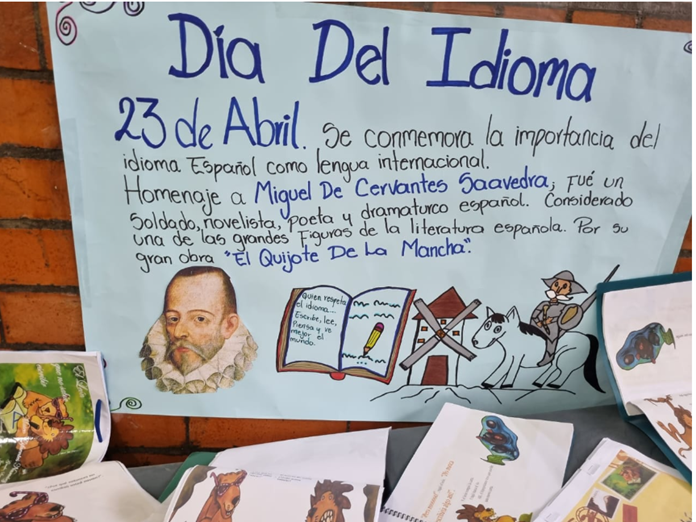 Día Del Idioma
23 de Abril. Se conmemora la importancia del
idioma Español como lengua internacional.
Homenaje a Miguel De Cervantes Saavedra, Fué un
Soldado, novelista, poeta y dramaturco español. Considerado
una de las grandes Figuras de la literatura española. Por su
gran obra "El Quijote De La Mancha".
Quien respeta
el idioma...
Escribe, lee,
Piensa y ve
mejor el
mundo.